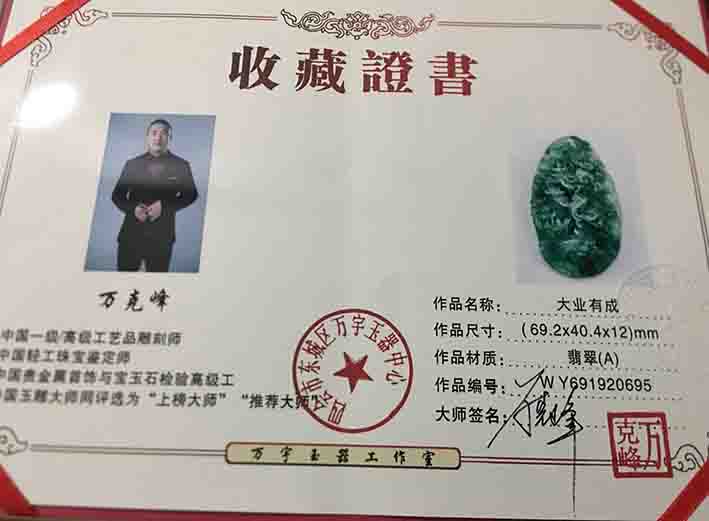 收藏證書
万克峰
中国一级/高级工艺品雕刻师
中国轻工珠宝鉴定师
中国贵金属首饰与宝玉石检验高级工
国玉雕大师网评选为“上榜大师”“推荐大师”
四会市东城区万宇玉器中心
作品名称: 大业有成
作品尺寸: (69.2x40.4x12)mm
作品材质: 翡翠(A)
作品编号: WY691920695
大师签名: 万克峰
万克峰
万宇玉器工作室